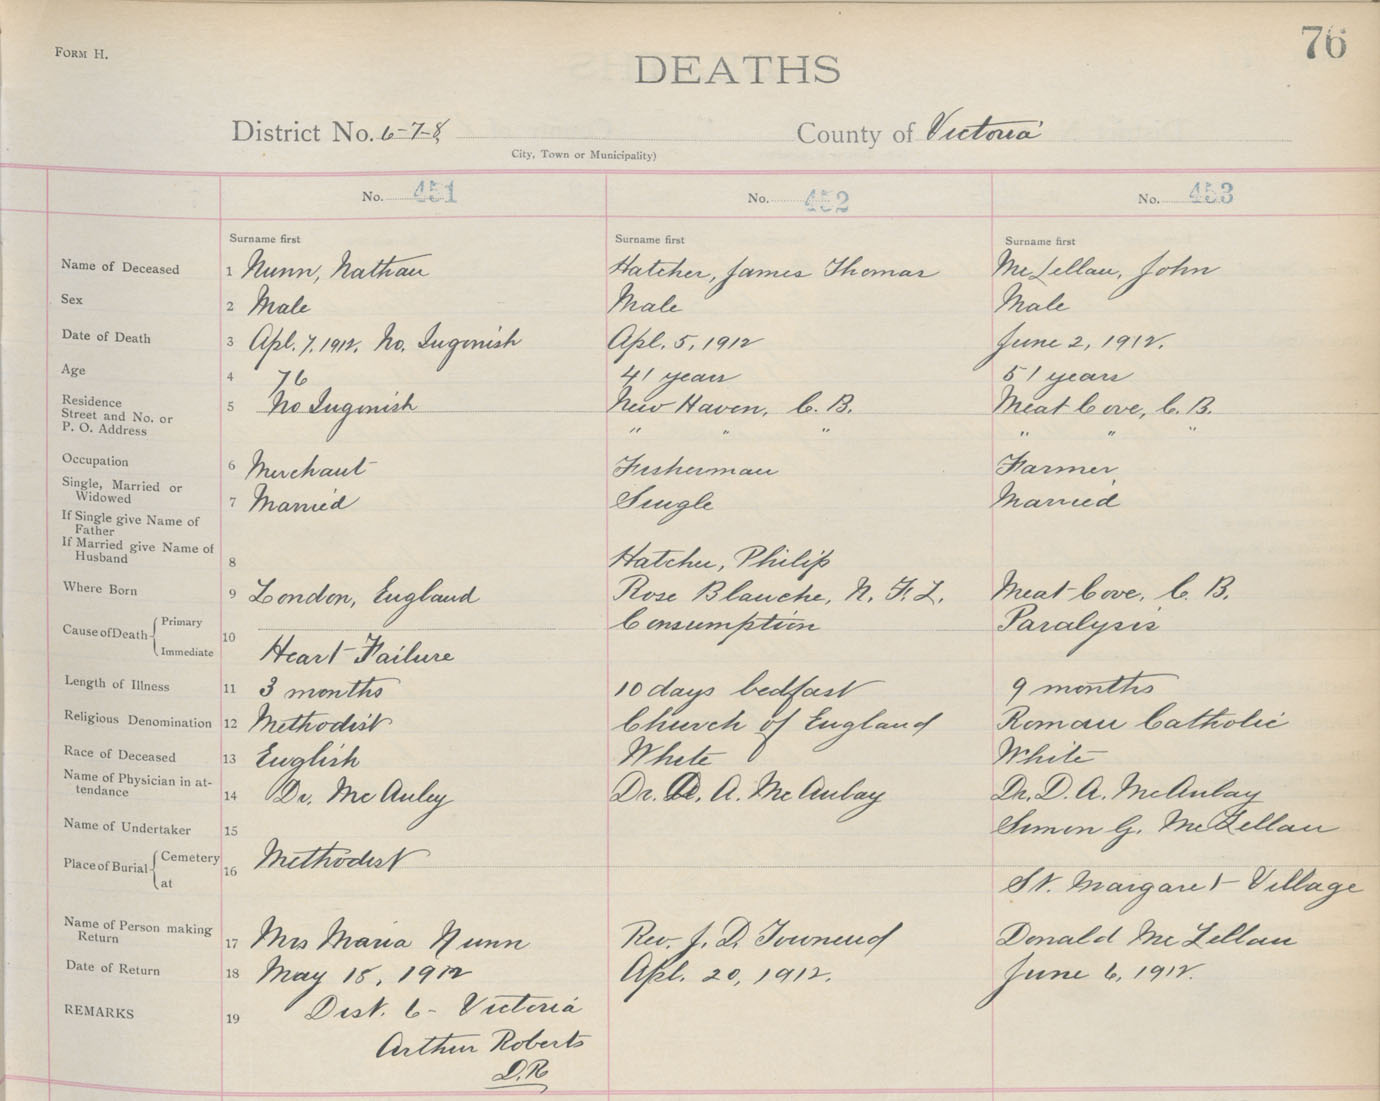 76
FORM H.
DEATHS
District No. 6-7-8 County of Victoria
City, Town or Municipality)
No. 451 No. 452 No. 453
Surname first Surname first Surname first
Name of Deceased 1 Nunn, Nathan Hatcher, James Thomas McLellan, John
Sex 2 Male Male Male
Date of Death 3 Apl. 7, 1912, No. Ingonish Apl. 5, 1912 June 2, 1912.
Age 4 76 41 years 51 years
Residence
Street and No. or
P. O. Address 5 No Ingonish New Haven, C. B. Meat Cove, C. B.
" " " " " "
Occupation 6 Merchant Fisherman Farmer
Single, Married or
Widowed 7 Married Single Married
If Single give Name of
Father
If Married give Name of
Husband 8 Hatcher, Philip
Where Born 9 London, England Rose Blanche, N. F. L. Meat Cove, C. B.
Cause of Death Primary 10 Consumption Paralysis
Immediate Heart Failure
Length of Illness 11 3 months 10 days bedfast 9 months
Religious Denomination 12 Methodist Church of England Roman Catholic
Race of Deceased 13 English White White
Name of Physician in at-
tendance 14 Dr. McAuley Dr. D. A. McAulay Dr. D. A. McAulay
Name of Undertaker 15 Simon G. McLellan
Place of Burial Cemetery 16 Methodist
at St. Margaret Village
Name of Person making
Return 17 Mrs Maria Nunn Rev. J. D. Townend Donald McLellan
Date of Return 18 May 15, 1912 Apl. 20, 1912. June 6, 1912.
REMARKS 19 Dist. 6 - Victoria
Arthur Roberts
D.R